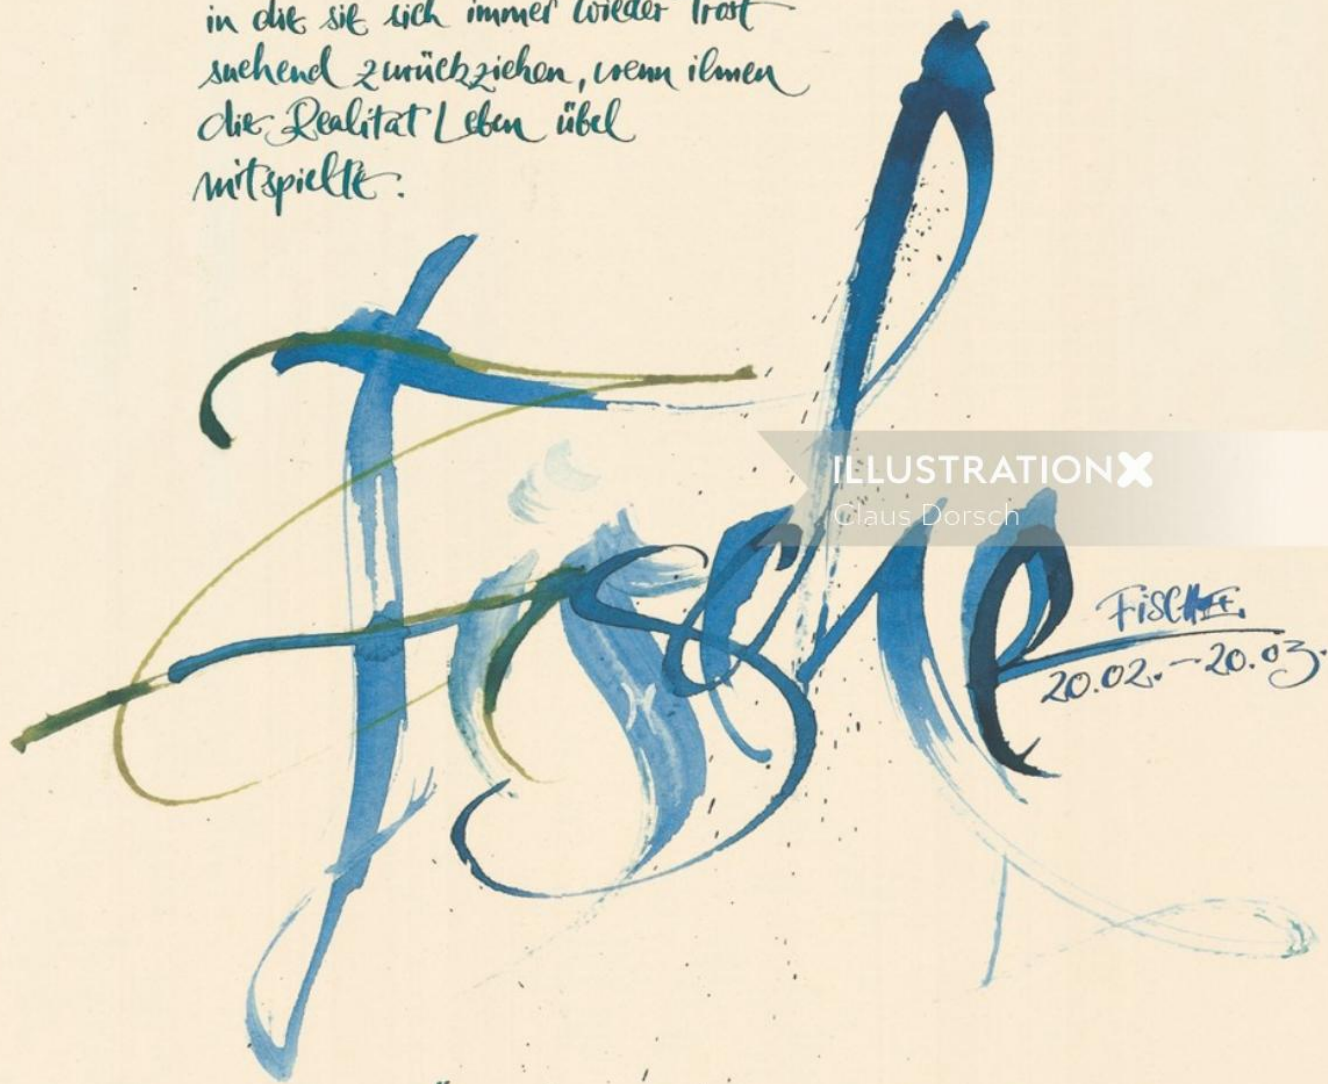 in die sie sich immer wieder Trost
suchend zurückziehen, wenn ihnen
die Realität Leben übel
mitspielte.
Fische
ILLUSTRATIONX
Claus Dorsch
FISCHE
20.02. – 20.03.